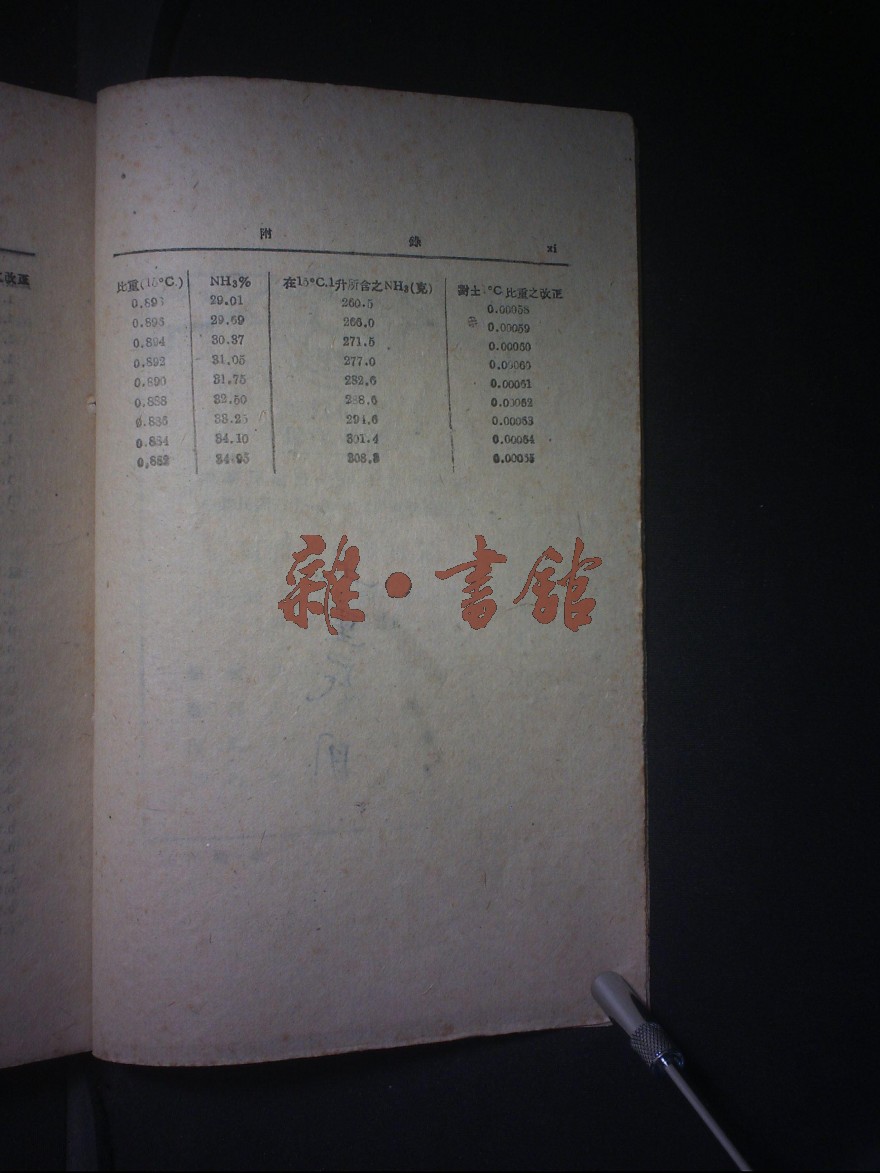 附 錄 xi
比重(15°C.) NH3% 在15°C.1升所含之NH3(克) 對±1°C.比重之改正
0.898 29.01 260.5 0.00058
0.896 29.69 266.0 0.00059
0.894 30.37 271.5 0.00060
0.892 31.05 277.0 0.00060
0.890 31.75 282.6 0.00061
0.888 32.50 288.6 0.00062
0.886 33.25 294.6 0.00063
0.884 34.10 301.4 0.00064
0.882 34.95 308.3 0.00065
雜·書館